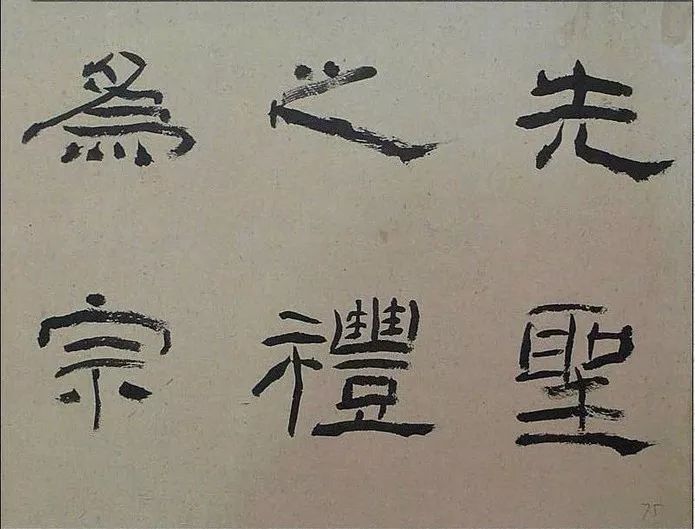 先聖
之禮
為宗
75